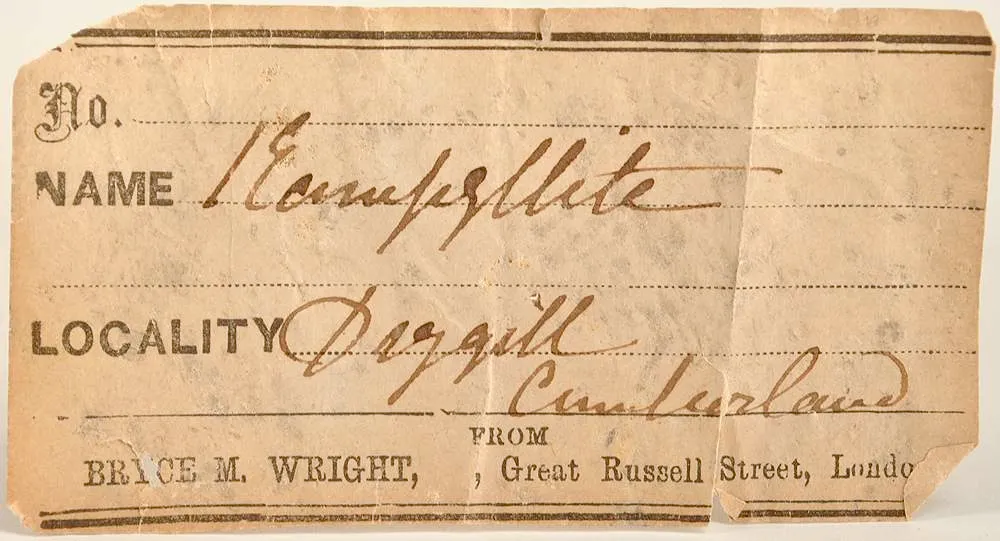 No.
NAME Kampyllite
LOCALITY Drygill
Cumberland
FROM
BRYCE M. WRIGHT, , Great Russell Street, Londo